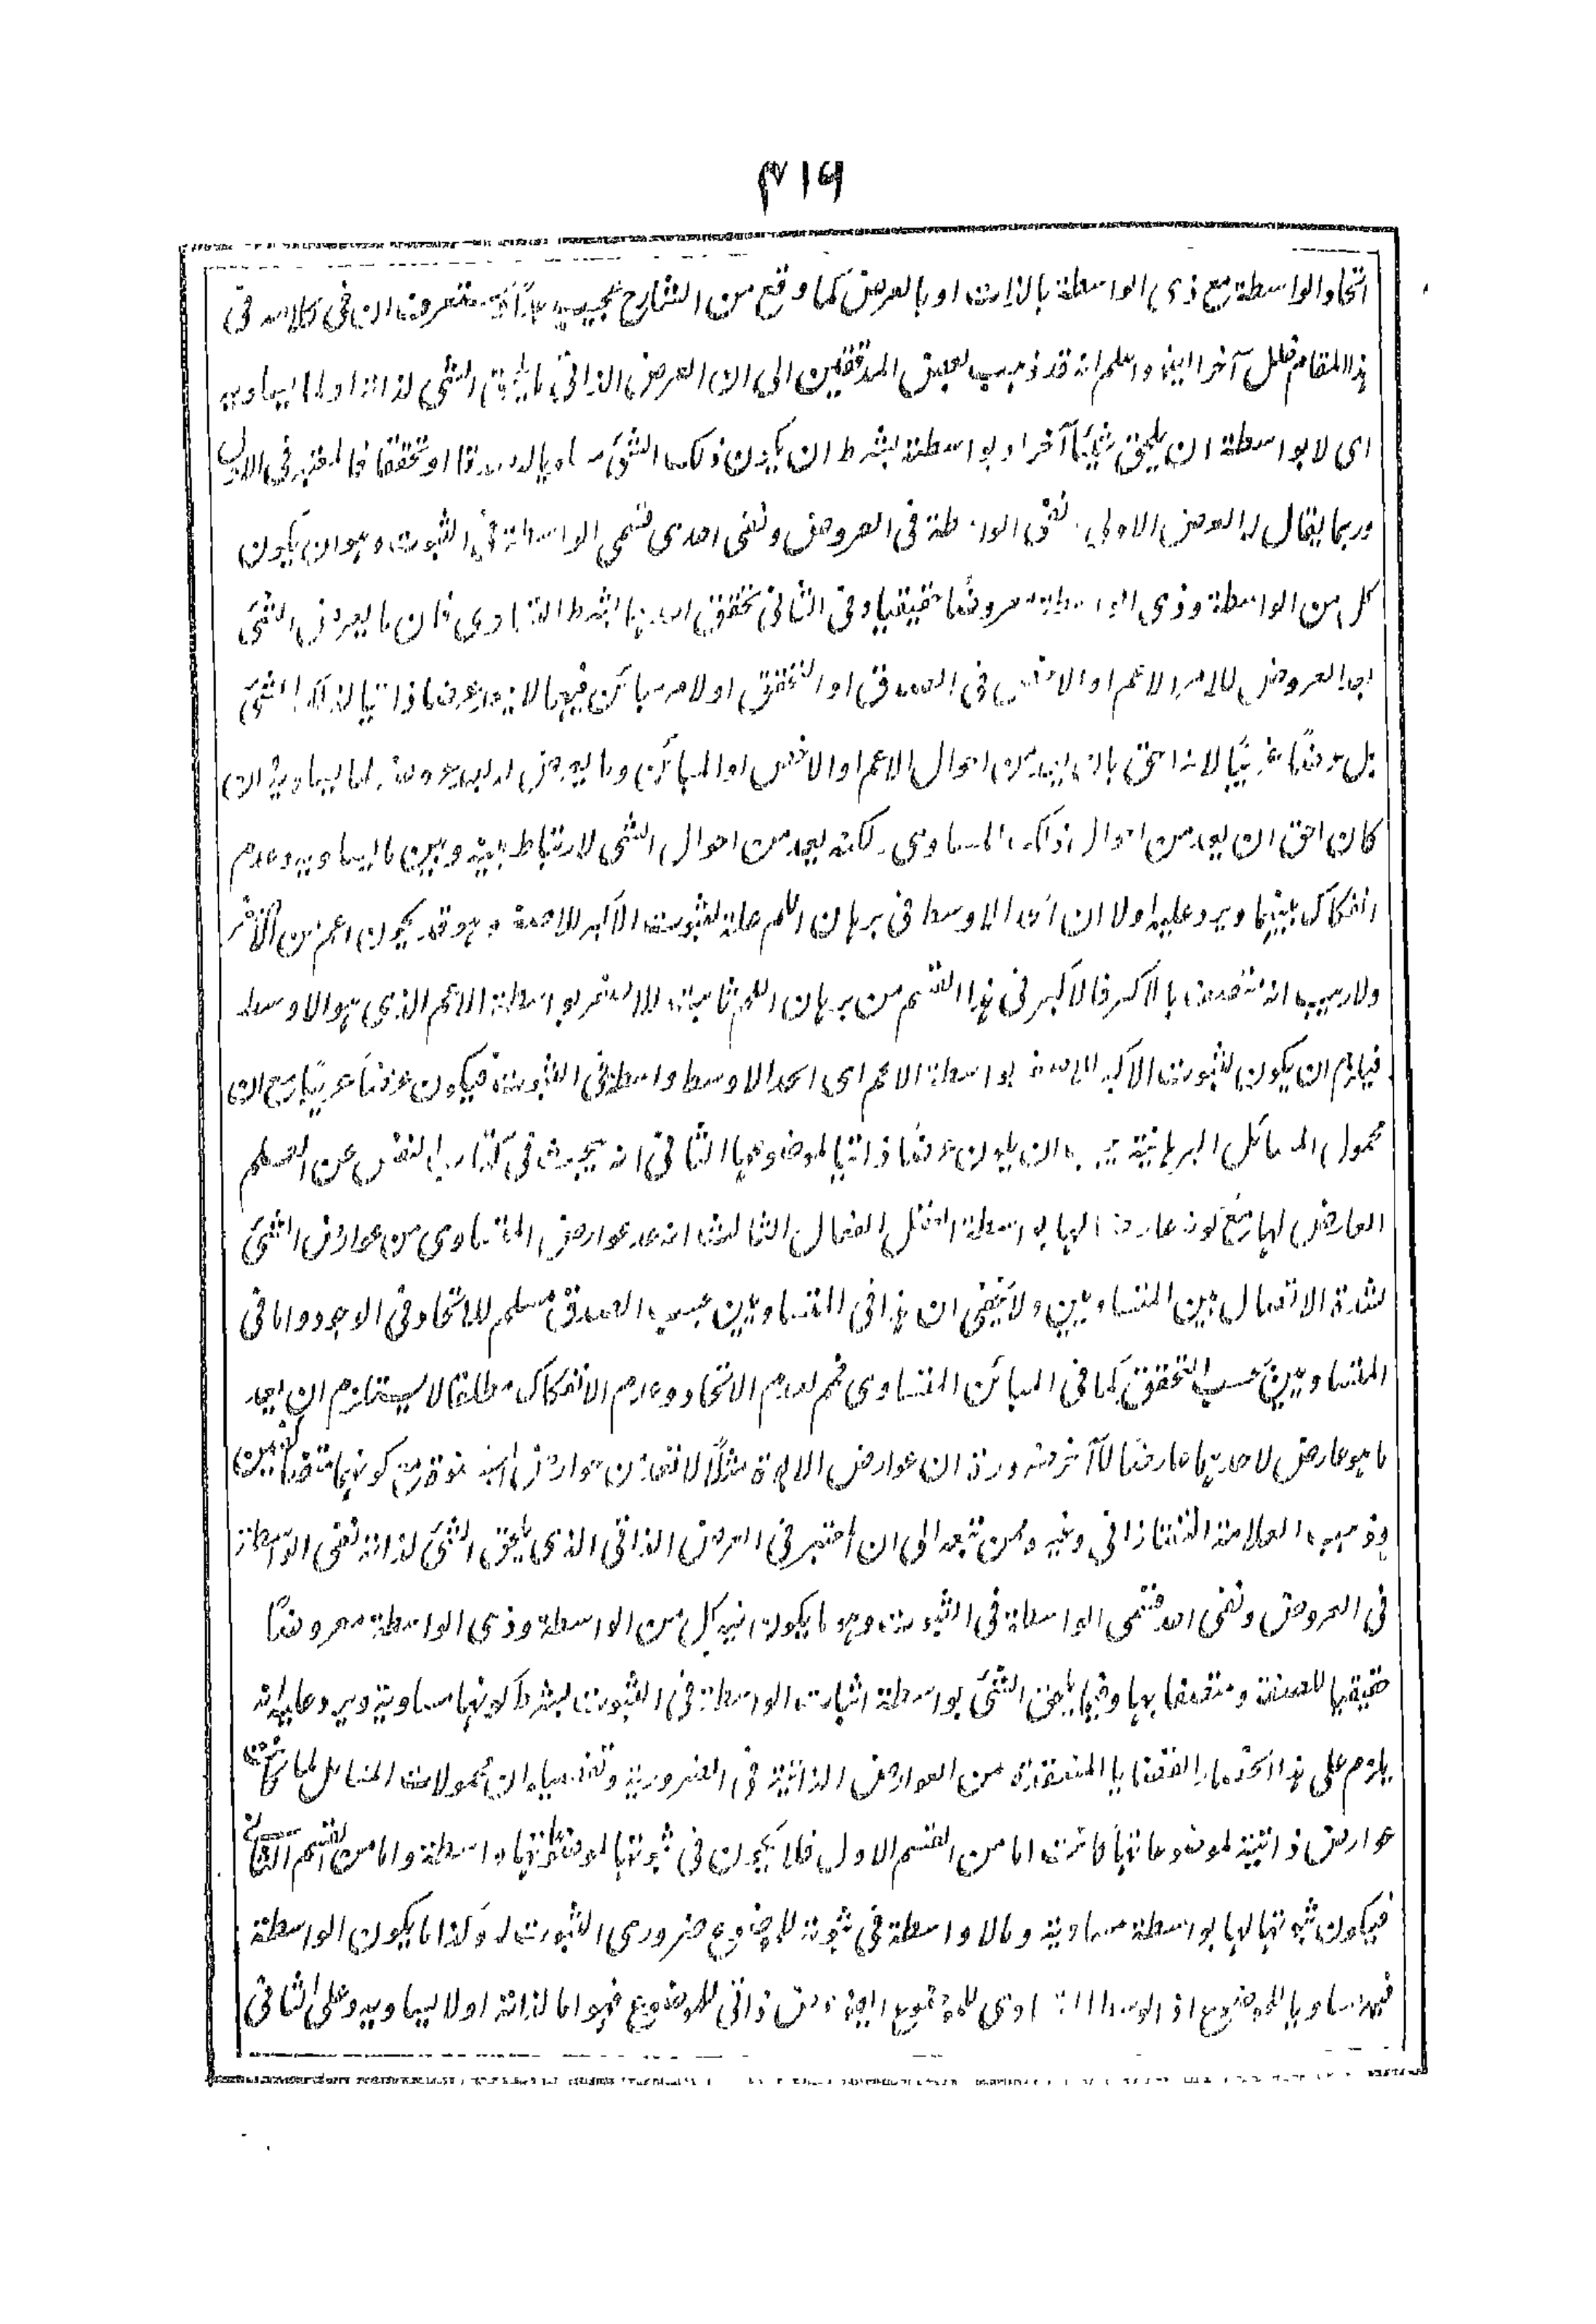 ٣١٦
اتحاد الواسطة مع ذى الواسطة بالذات او بالعرض كما وقع من الشارح عجيب جدا ستعرف ان فى كلامه فى
هذا المقام خلل آخر ايضا واعلم انه قد ذهب بعض المدققين الى ان العرض الذاتى ما يلحق الشى لذاته او لما يساويه
اى لا بواسطة ان يلحق شيئا آخر او بواسطة بشرط ان يكون ذلك الشئ مساويا له صدقا او تحققا فالمعتبر فى الاول
وربما يقال له العرض الاولى نفى الواسطة فى العروض ونفى احدى قسمى الواسطة فى الثبوت وهو ان يكون
كل من الواسطة وذى الواسطة معروضا حقيقيا وفى الثانى تحقق احدهما بشرط التساوى فان ما يعرض الشئ
بعد العروض للامر الاعم او الاخص فى الصدق او التحقق او لامر مبائن فيهما لا يعد عرضا ذاتيا لذلك الشئ
بل عرضا غريبا لانه احق بان يعد من احوال الاعم او الاخص او المبائن وما يعرض له بعد عروضه لما يساويه وان
كان احق ان يعد من احوال ذلك المساوى لكنه يعد من احوال الشى لارتباط بينه وبين ما يساويه وعدم
انفكاك بينهما ويرد عليه اولا ان الحد الاوسط فى برهان اللم علة لثبوت الاكبر للاصغر وهو قد يكون اعم من الاصغر
ولا ريب انه متصف بالاكبر فالاكبر فى هذا القسم من برهان اللم ثابت للاصغر بواسطة الاعم الذى هو الاوسط
فيلزم ان يكون لثبوت الاكبر للاصغر بواسطة الاعم اى الحد الاوسط واسطة فى الثبوت فيكون عرضا غريبا مع ان
محمول المسائل البرهانية يجب ان يكون عرضا ذاتيا لموضوعها الثانى انه يبحث فى كتاب النفس عن العلم
العارض لها مع كونه عارضا لها بواسطة العقل الفعال الثالث انه عد عوارض المتساوى من عوارض الشئ
لشدة الاتصال بين المتساويين ولا يخفى ان هذا فى المتساويين بحسب الصدق مسلم للاتحاد فى الوجود واما فى
المتساويين بحسب التحقق كما فى المبائن المتساوى فمم لعدم الاتحاد وعدم الانفكاك مطلقا لا يستلزم ان يعد
ما هو عارض لاحدهما عارضا للآخر ضرورة ان عوارض الابوة مثلا لا تعد من عوارض البنوة مع كونهما متضايفين
وذهب العلامة التفتازانى وغيره ومن تبعه الى ان المعتبر فى العرض الذاتى الذى يلحق الشئ لذاته نفى الواسطة
فى العروض ونفى احد قسمى الواسطة فى الثبوت وهو ما يكون فيه كل من الواسطة وذى الواسطة معروضا
حقيقيا للصفة ومتصفا بها وفيما يلحق الشئ بواسطة اثبات الواسطة فى الثبوت بشرط كونها مساوية ويرد عليه انه
يلزم على هذا انحصار القضايا المنعقدة من العوارض الذاتية فى الضرورية وتفصيله ان محمولات المسائل لما كانت
عوارض ذاتية لموضوعاتها كانت اما من القسم الاول فلا يكون فى ثبوتها لموضوعاتها واسطة واما من القسم الثانى
فيكون ثبوتها لها بواسطة مساوية وما لا واسطة فى ثبوته للموضوع ضرورى الثبوت له وكذا ما يكون الواسطة
فيه مساويا للموضوع اذ الوسط المساوى للموضوع ايضا عرض ذاتى للموضوع فهو اما لذاته او لما يساويه وعلى الثانى